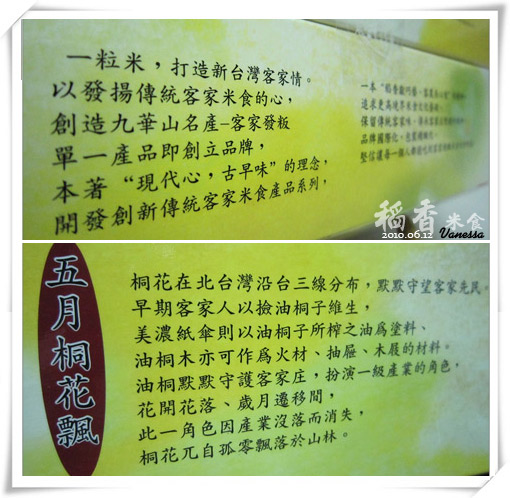 一粒米，打造新台灣客家情。
以發揚傳統客家米食的心，
創造九華山名產-客家發粄
單一產品即創立品牌，
本著“現代心，古早味”的理念，
開發創新傳統客家米食產品系列，
保留傳統客家味，
品牌國際化，
稻香米食
2010.06.12 Vanessa
五月桐花飄
桐花在北台灣沿台三線分布，默默守望客家先民。
早期客家人以撿油桐子維生，
美濃紙傘則以油桐子所榨之油為塗料、
油桐木亦可作為火材、抽屜、木屐的材料。
油桐默默守護客家庄，扮演一級產業的角色，
花開花落、歲月遷移間，
此一角色因產業沒落而消失，
桐花兀自孤零飄落於山林。